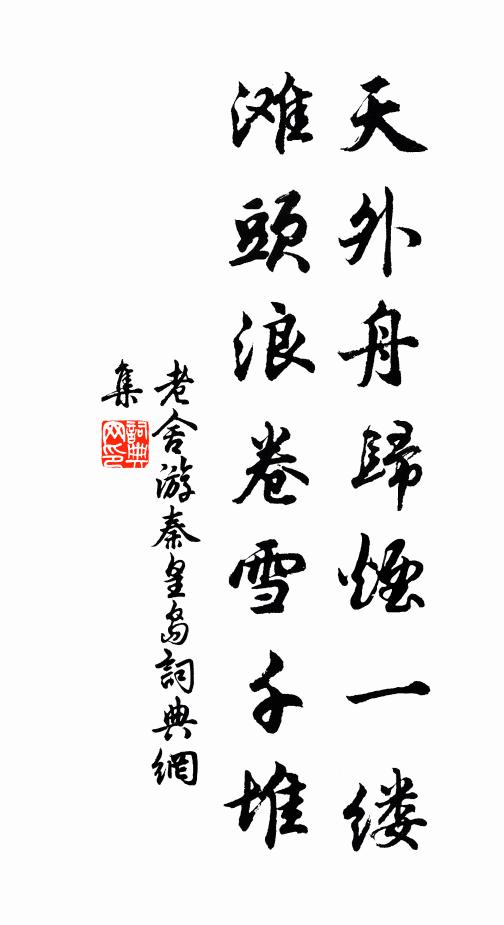 天外舟歸煙一缕
滩頭浪卷雪千堆
老舍游秦皇島詞典網
集
詞典
网印